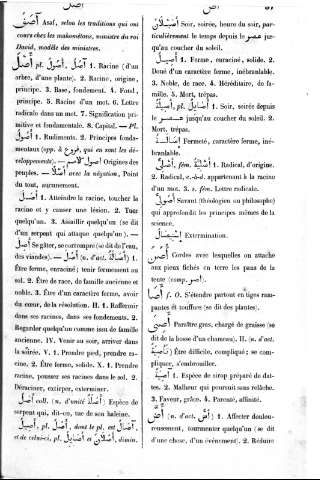 اصل
اص
37
آصَفُ Asaf, selon les traditions qui ont
cours chez les mahométans, ministre du roi
David, modèle des ministres.
أَصْلٌ pl. أُصُولٌ, pl. آصُلٌ 1. Racine (d'un
arbre, d'une plante). 2. Racine, origine,
principe. 3. Base, fondement. 4. Fond,
principe. 5. Racine d'un mot. 6. Lettre
radicale dans un mot. 7. Signification pri-
mitive et fondamentale. 8. Capital. — Pl.
أُصُولٌ 1. Rudiments. 2. Principes fonda-
mentaux (opp. à فروع, qui en sont les dé-
veloppements). — Origines des
peuples. — أَصْلًا avec la négation, Point
du tout, aucunement.
أَصَلَ 1. Atteindre la racine, toucher la
racine et y causer une lésion. 2. Tuer
quelqu'un. 3. Assaillir quelqu'un (se dit
d'un serpent qui attaque quelqu'un). —
أَصِلَ Se gâter, se corrompre (se dit de l'eau,
des viandes). — أَصُلَ (n. d'act. أَصَالَةٌ) 1.
Être ferme, enraciné; tenir fermement au
sol. 2. Être de race, de famille ancienne et
noble. 3. Être d'un caractère ferme, avoir
du cœur, de la résolution. II. 1. Raffermir
dans ses racines, dans ses fondements. 2.
Regarder quelqu'un comme issu de famille
ancienne. IV. Venir au soir, arriver dans
la soirée. V. 1. Prendre pied, prendre ra-
cine. 2. Être ferme, solide. X. 1. Prendre
racine, pousser ses racines dans le sol. 2.
Déraciner, extirper, exterminer.
أَصَلٌ coll. (n. d'unité أَصَلَةٌ) Espèce de
serpent qui, dit-on, tue de son haleine.
أَصِيلٌ, pl. أُصُلٌ, dont le pl. est آصَالٌ,
et de celui-ci, pl. أَصَائِلُ et أُصْلَانٌ, dimin.
أُصَيْلَانٌ Soir, soirée, heure du soir, par-
ticulièrement le temps depuis le عصر jus-
qu'au coucher du soleil.
أَصِيلٌ 1. Ferme, enraciné, solide. 2.
Doué d'un caractère ferme, inébranlable.
3. Noble, de race. 4. Héréditaire, de fa-
mille. 5. Mort, trépas.
أَصِيلَةٌ, pl. أَصَائِلُ 1. Soir, soirée depuis
le عصر jusqu'au coucher du soleil. 2.
Mort, trépas.
أَصَالَةٌ Fermeté, caractère ferme, iné-
branlable.
أَصْلِيٌّ, fém. أَصْلِيَّةٌ 1. Radical, d'origine.
2. Radical, c.-à-d. appartenant à la racine
d'un mot. 3. s. fém. Lettre radicale.
أُصُولِيٌّ Savant (théologien ou philosophe)
qui approfondit les principes mêmes de la
science.
اِسْتِيصَالٌ Extermination.
Cordes avec lesquelles on attache
aux pieux fichés en terre les pans de la
tente (comp. أصر).
أَصَا f. O. S'étendre partout en tiges ram-
pantes et touffues (se dit des plantes).
Paraître gras, chargé de graisse (se
dit de la bosse d'un chameau). II. (n. d'act.
تَأْصِيَةٌ) Être difficile, compliqué; se com-
pliquer, s'embrouiller.
1. Espèce de sirop préparé de dat-
tes. 2. Malheur qui poursuit sans relâche.
3. Faveur, grâce. 4. Parenté, affinité.
أَضَّ (n. d'act. أَضٌّ) 1. Affecter doulou-
reusement, tourmenter quelqu'un (se dit
d'une chose, d'un événement). 2. Réduire